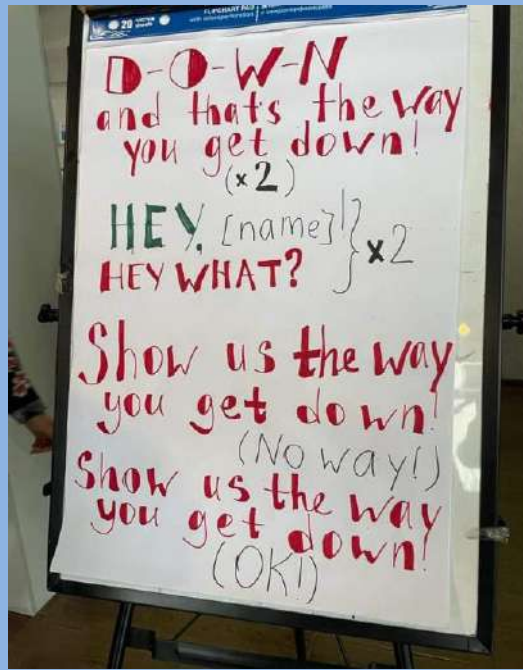 20
FLIPCHART PAD
D-O-W-N
and thats the way
you get down!
(x2)
HEY, [name]! } x2
HEY WHAT?
Show us the way
you get down!
(No way!)
Show us the way
you get down!
(OK!)